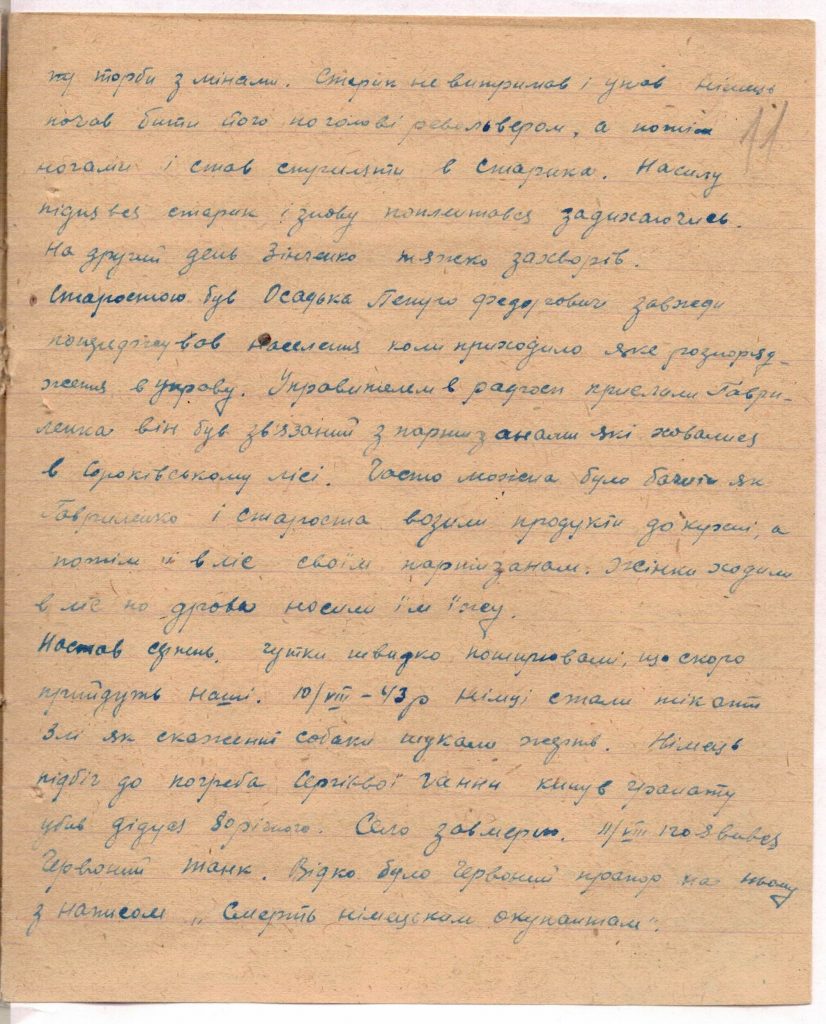 ну торби з мінами. Старик не витримав і упав Німець
почав бити його по голові револьвером, а потім
11
ногами і став стріляти в старика. На силу
піднявся старик і знову поплентався задихаючись.
На другий день Зінченко тяжко захворів.
Старостою був Осадька Федорович завжди
попереджував населення коли приходило яке розпоряд-
ження в управу. Управителем в радгосп прислали Гаври-
ленка він був зв'язаний з партизанами які ховалися
в Сороківському лісі. Часто можна було бачити як
Гавриленко і староста возили продукти до кухні, а
потім й в ліс своїм партизанам. Жінки ходили
в ліс по дрова носили їм їжу.
Настав серпень. Чутки швидко поширювалі, що скоро
прийдуть наші. 10/VIII – 43р Німці стали тікати
Злі як скажені собаки шукали жертв. Німець
підбіг до погреба Сергієвої Ганни кинув гранату
убив дідуся 80річного. Село завмерло. 11/VIII
Червоний танк. Відко було Червоний прапор на ньому
з написом „Смерть німецьким окупантам".